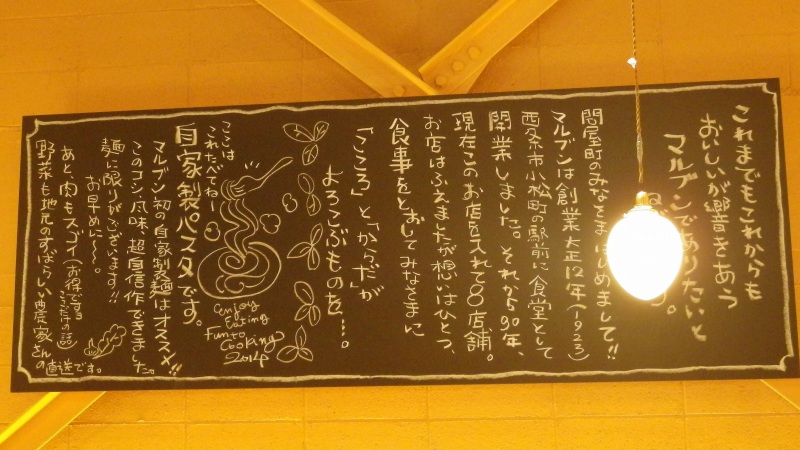 これまでもこれからも
おいしいが響きあう
マルブンでありたいと
す。
問屋町のみなさまはじめまして!!
マルブンは創業大正12年(1923)
西条市小松町の駅前に食堂として
開業しました。それから90年、
現在このお店を入れて8店舗。
お店はふえましたが想いはひとつ、
食事をとおしてみなさまに
「こころ」と「からだ」が
よろこぶものを…。
ここは
これたべてね〜
自家製パスタです。
マルブン初の自家製麺はオススメ!!
このコシ、風味、超自信作できました。
麺に限りがございます!!
お早めに〜〜。
あと、肉もスゴイ(お得できる
ここだけの話)
野菜も地元のすばらしい農家さんの直送です。
enjoy
Eating
Fun to
Cooking
2014